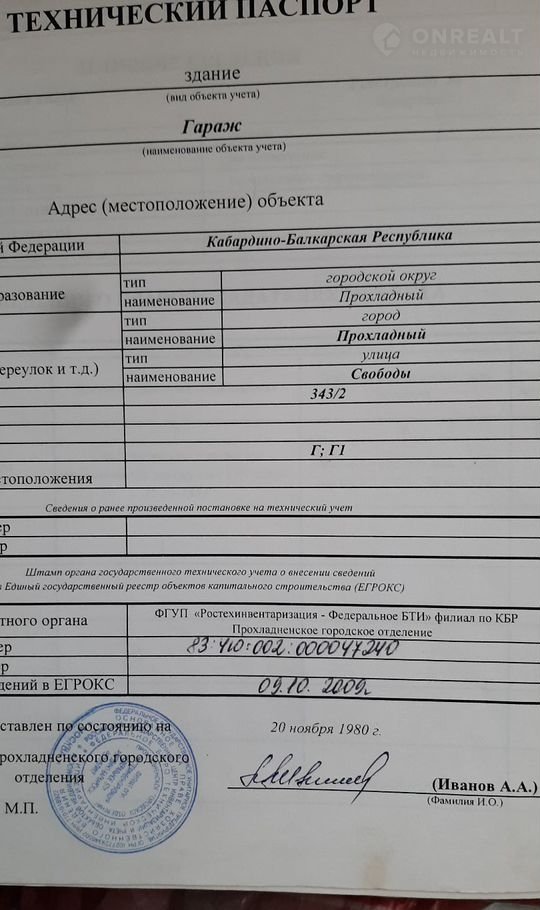 ТЕХНИЧЕСКИЙ ПАСПОРТ
ONREALT
НЕДВИЖИМОСТЬ
здание
(вид объекта учета)
Гараж
(наименование объекта учета)
Адрес (местоположение) объекта
й Федерации Кабардино-Балкарская Республика
разование тип городской округ
наименование Прохладный
тип город
наименование Прохладный
ереулок и т.д.) тип улица
наименование Свободы
343/2
Г; Г1
стоположения
Сведения о ранее произведенной постановке на технический учет
ер
р
Штамп органа государственного технического учета о внесении сведений
в Единый государственный реестр объектов капитального строительства (ЕГРОКС)
тного органа ФГУП «Ростехинвентаризация - Федеральное БТИ» филиал по КБР
Прохладненское городское отделение
ер 83:410:002:000047240
р
дений в ЕГРОКС 09.10. 2009г.
оставлен по состоянию на 20 ноября 1980 г.
рохладненского городского
отделения (Иванов А.А.)
(Фамилия И.О.)
М.П.